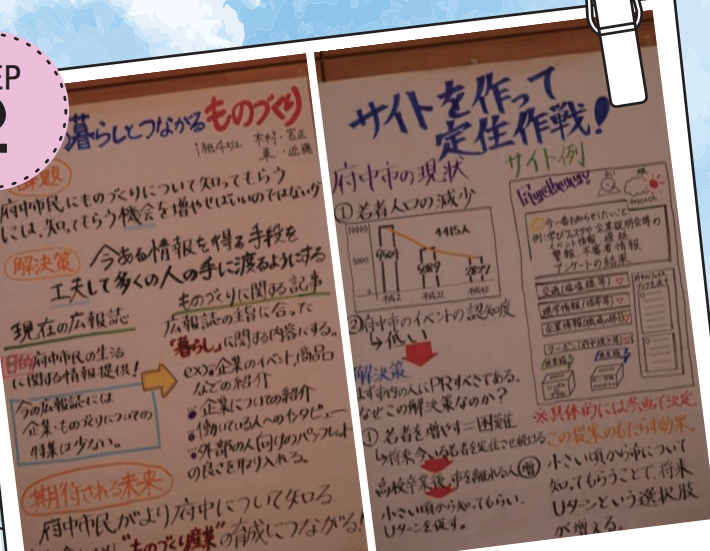 EP
2
暮らしとつながるものづくり
1組4班
府中市民にものづくりについて知ってもらう
には、知ってもらう機会を増やせばいいのではないか
解決策
今ある情報を得る手段を
工夫して多くの人の手に渡るようにする
現在の広報誌
目的 府中市民の生活
に関する情報提供!
今の広報誌には
企業・ものづくりについての
特集は少ない。
ものづくりに関する記事
広報誌の主旨に合った
"暮らし"に関する内容にする。
ex)企業のイベント、商品
などの紹介
・企業についての紹介
・働いている人へのインタビュー
・外部の人向けのパンフレット
の良さを取り入れる。
期待される未来
府中市民がより府中について知る
"ものづくり産業"の育成につながる!
サイトを作って
定住作戦!
府中市の現状
①若者人口の減少
10000
5000
0
4415人
②府中市のイベントの認知度
↳低い
解決策
まず市内の人にPRすべきである。
なぜこの解決策なのか?
①若者を増やす=困難
↳将来今いる若者を定住させ続ける
高校卒業後、市を離れる人 増
小さい頃から知ってもらい、
Uターンを促す。
サイト例
今一番お知らせしたいこと
例:学びフェスタや企業説明会等の
イベント情報
警報、不審者情報
アンケートの結果
※具体的には参画で決定
この提案のもたらす効果
小さい頃から市について
知ってもらうことで、将来
Uターンという選択肢
が増える。